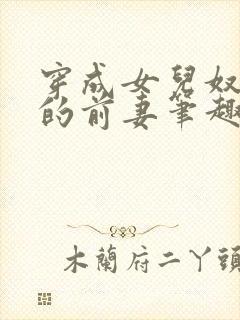 穿成女兒奴
的前妻筆趣
木蘭府二丫頭